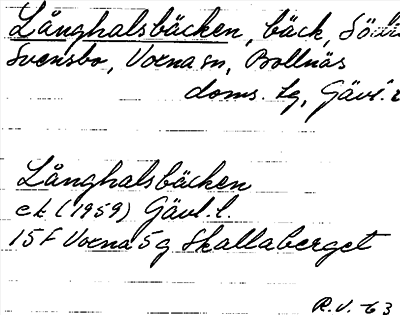 Långhalsbäcken, bäck, Södr
Svensbo, Voxna sn, Bollnäs
doms. hg, Gävl. l
Långhalsbäcken
ek (1959) Gävl. l.
15 F Voxna 5 g Skallaberget
R.J. -63